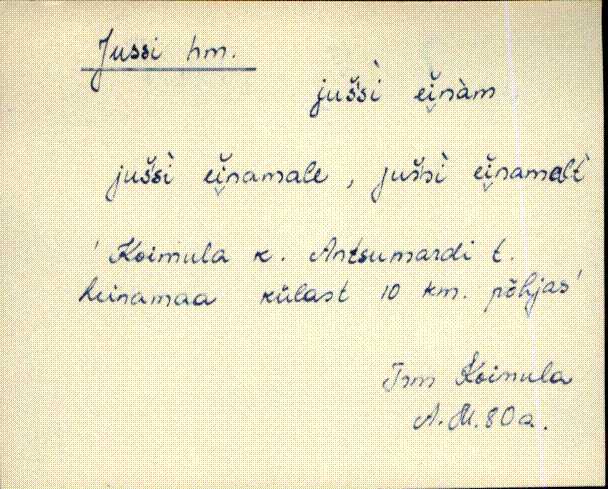 Jussi hm.
juš́sì̬ ei̬nàm
juš́sì̬ ei̬namale, juš́sì̬ ei̬namalt
' Koimula k. Antsumardi t.
heinamaa külast 10 km. põhjas'
Trm Koimula
A. M. 80 a.